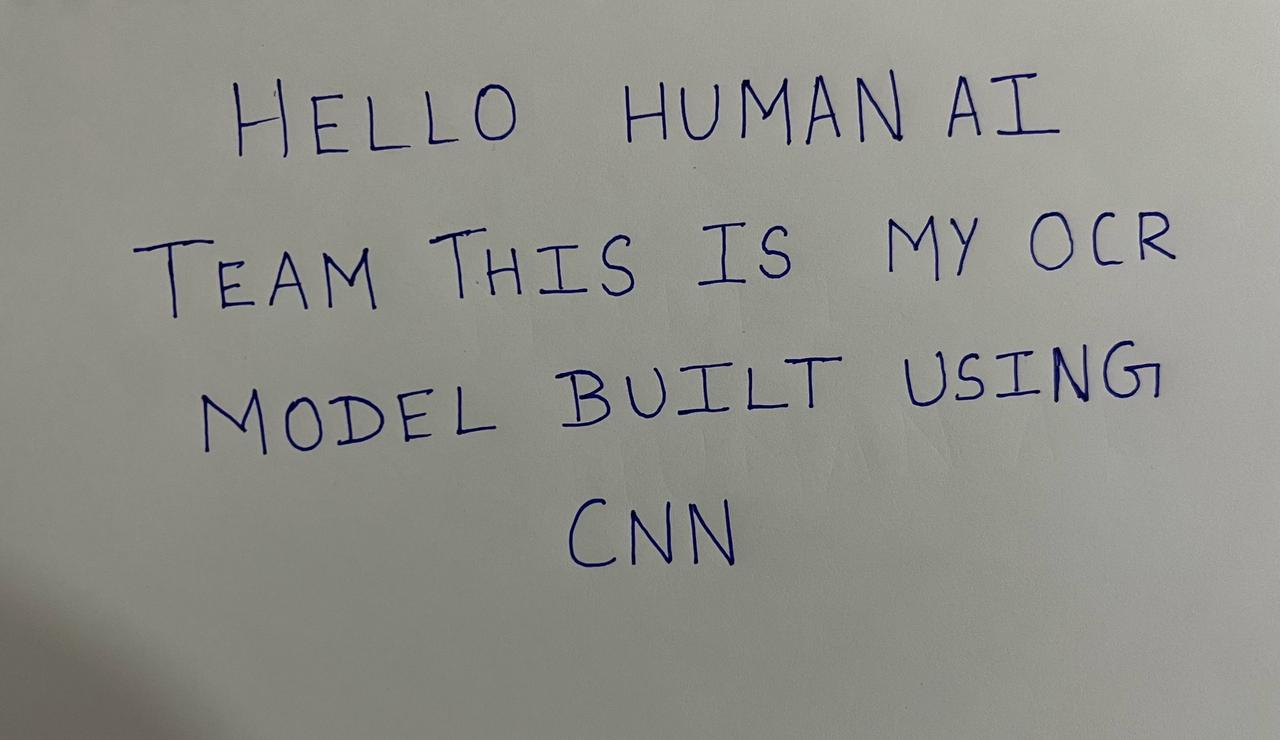 HELLO HUMAN AI
TEAM THIS IS MY OCR
MODEL BUILT USING
CNN